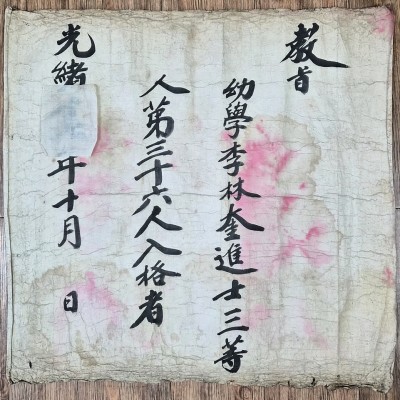 教旨
幼學李林奎進士三等
人第三十六人入格者
光緒 年十月 日